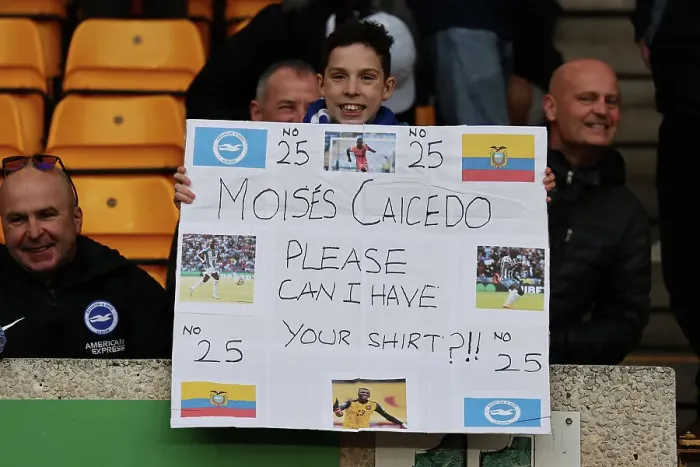 NO 25
NO 25
MOISÉS CAICEDO
PLEASE
CAN I HAVE
YOUR SHIRT?!!
NO 25
NO 25
AMERICAN EXPRESS